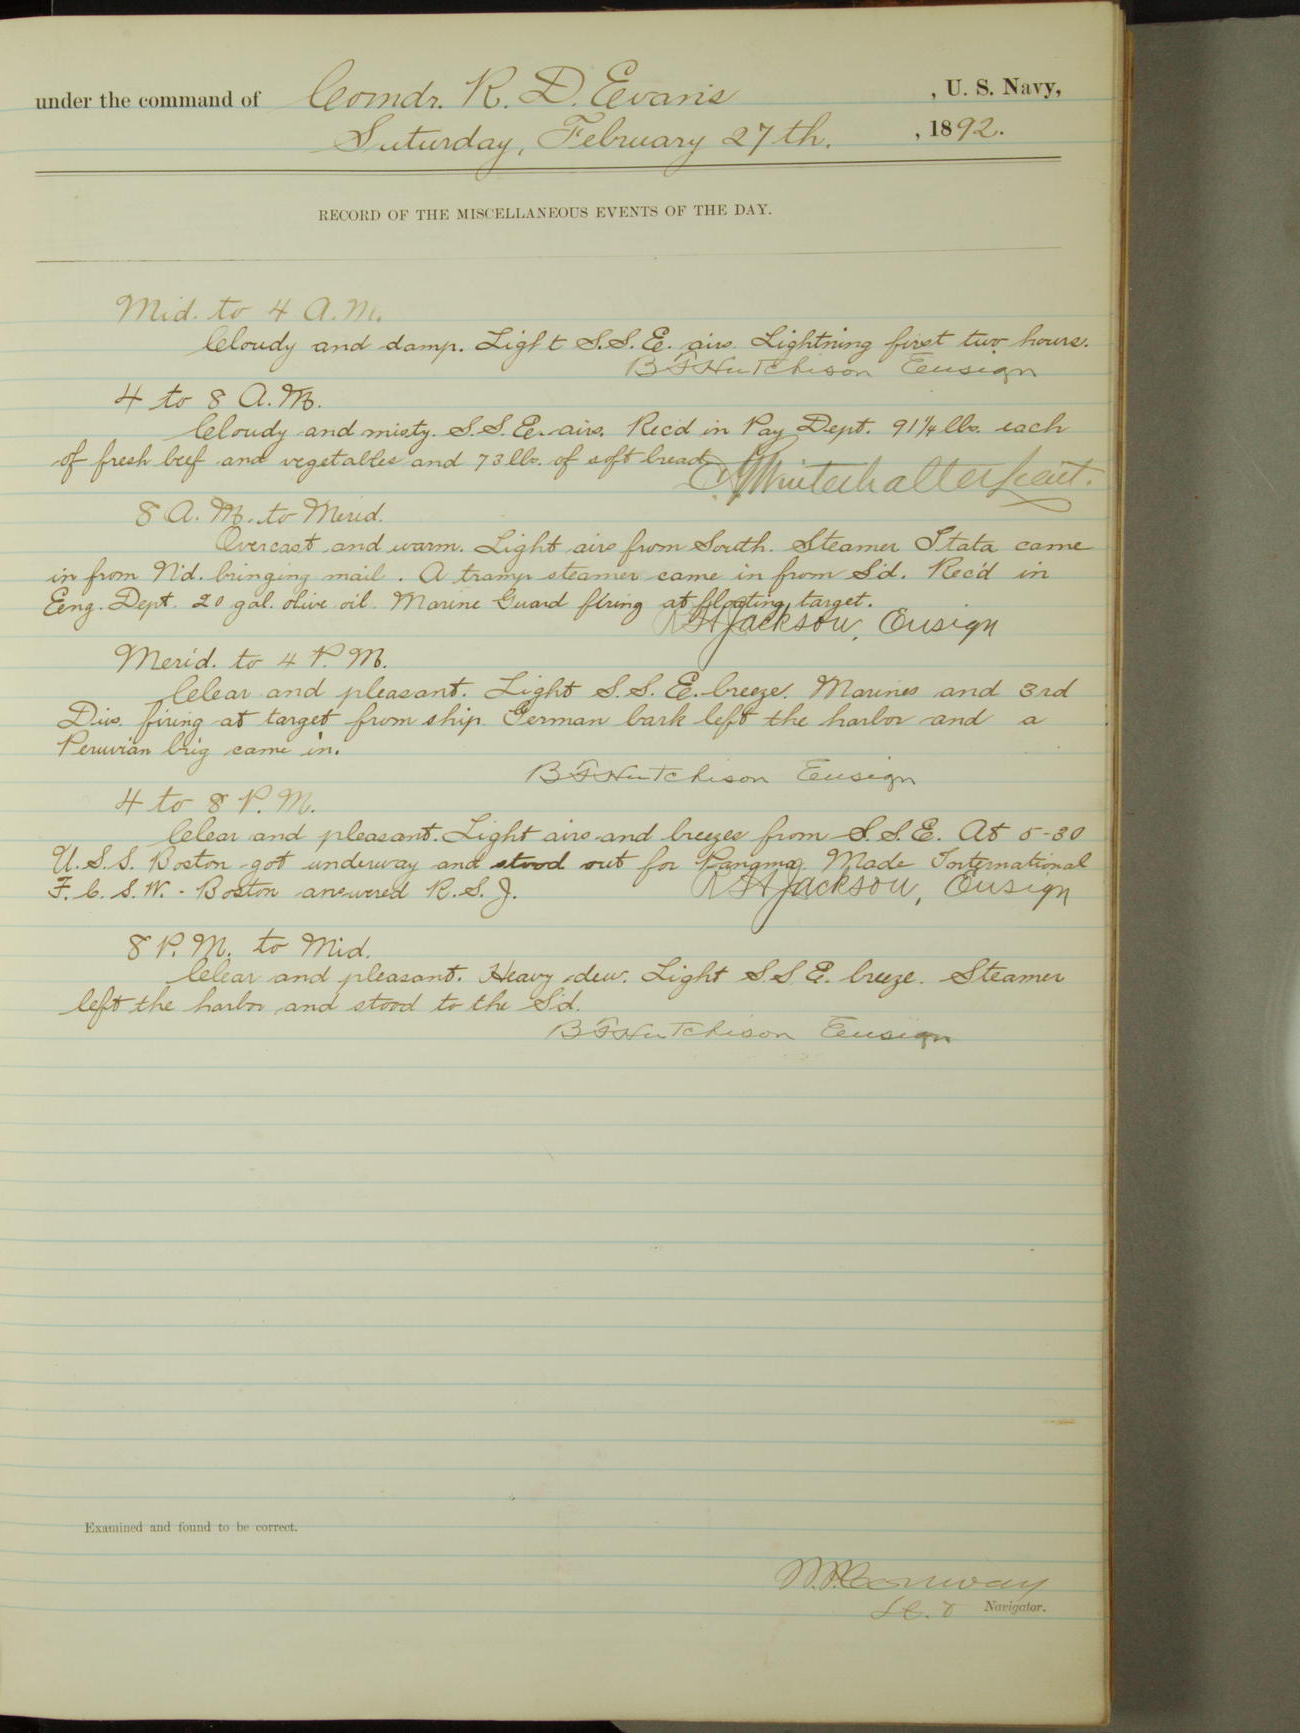 under the command of Comdr. R. D. Evans , U. S. Navy,
Saturday, February 27th. , 1892.
RECORD OF THE MISCELLANEOUS EVENTS OF THE DAY.
Mid. to 4 A.M.
Cloudy and damp. Light S.S.E. airs. Lightning first two hours.
B F Hutchison Ensign
4 to 8 A.M.
Cloudy and misty. S.S.E. airs. Rec'd in Pay Dept. 91 1/4 lbs. each
of fresh beef and vegetables and 73 lbs. of soft bread.
Winterhalter Lieut.
8 A.M. to Merid.
Overcast and warm. Light airs from South. Steamer Itata came
in from N'd. bringing mail. A tramp steamer came in from S'd. Rec'd in
Eng. Dept. 20 gal. olive oil. Marine Guard firing at floating target.
R H Jackson, Ensign
Merid. to 4 P.M.
Clear and pleasant. Light S.S.E. breeze. Marines and 3rd
Divs. firing at target from ship. German bark left the harbor and a
Peruvian brig came in.
B F Hutchison Ensign
4 to 8 P.M.
Clear and pleasant. Light airs and breezes from S.S.E. At 5-30
U.S.S. Boston got underway and stood out for Panama. Made International
F. C. S. W. - Boston answered R. S. J.
R H Jackson, Ensign
8 P.M. to Mid.
Clear and pleasant. Heavy dew. Light S.S.E. breeze. Steamer
left the harbor and stood to the S'd.
B F Hutchison Ensign
Examined and found to be correct.
Conway
Navigator.